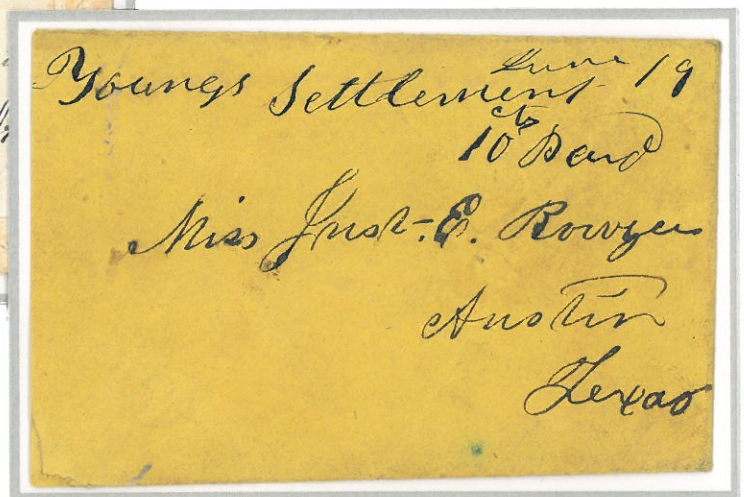 Youngs Settlement June 19
10 cts Paid
Miss Just. E.
Austin
Texas